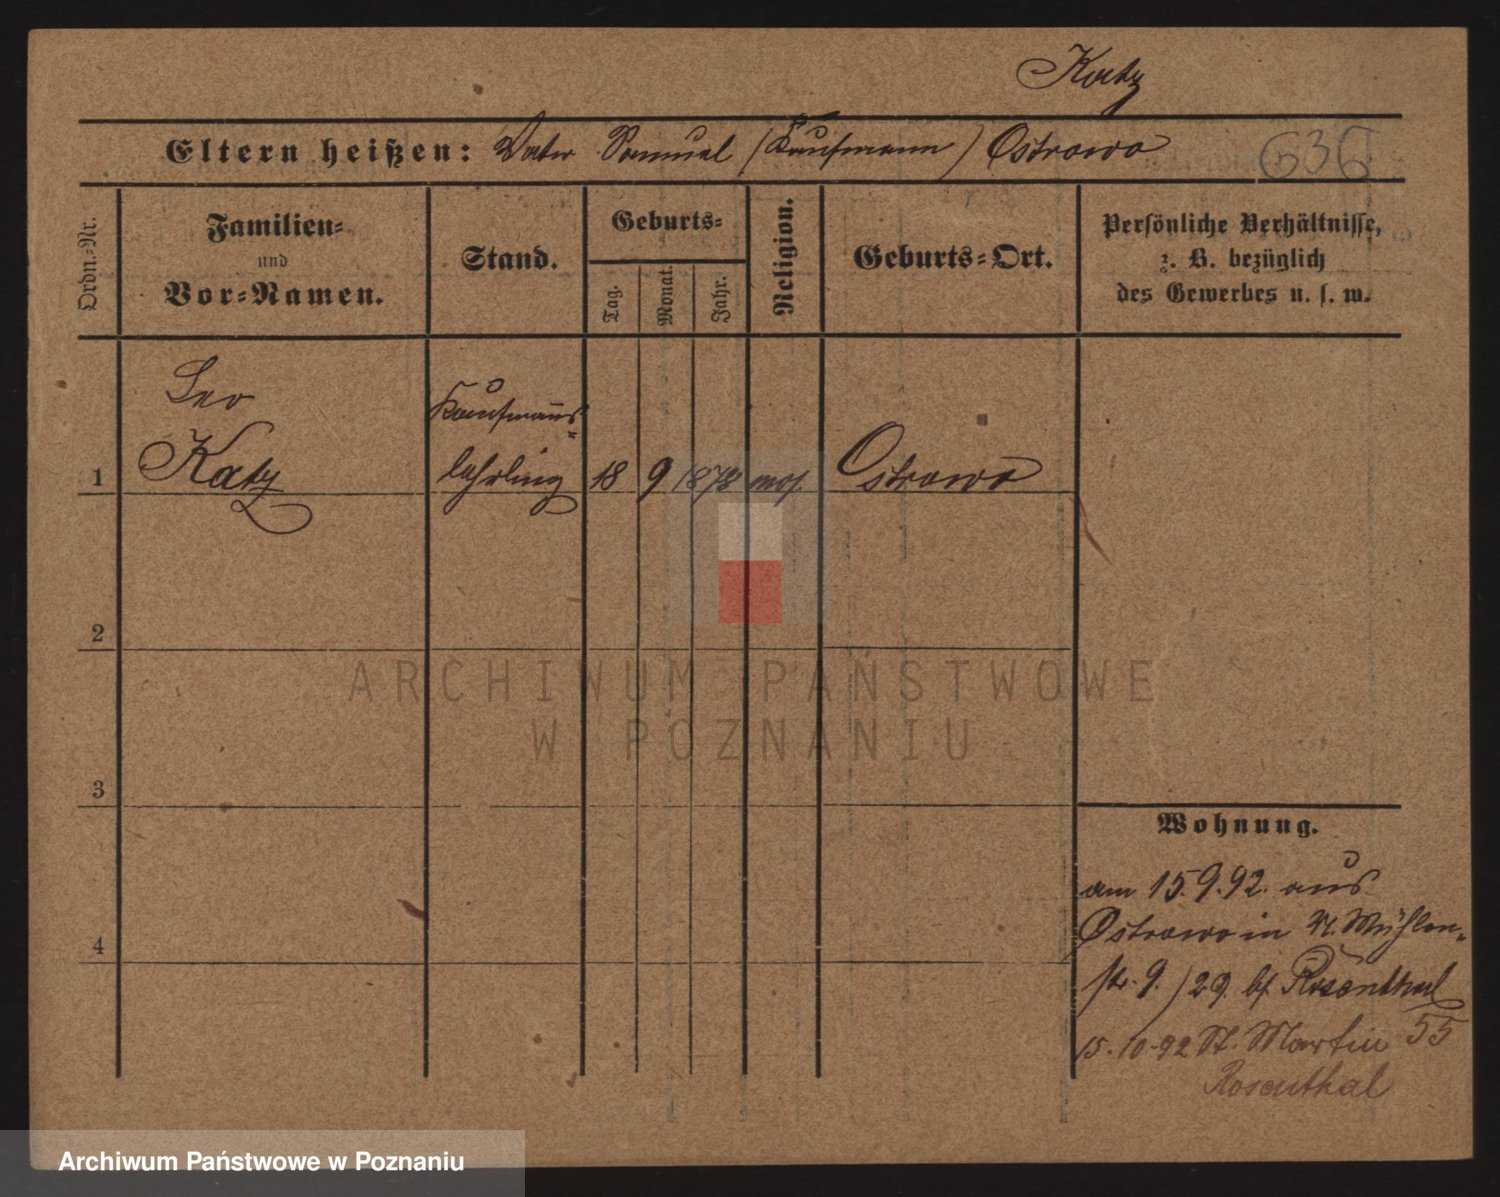 Katz
Eltern heißen: Vater Samuel (Kaufmann) Ostrowo
636
Ordn.-Nr.
Familien-
und
Vor-Namen.
Stand.
Geburts-
Tag.
Monat.
Jahr.
Religion.
Geburts-Ort.
Persönliche Verhältnisse,
z. B. bezüglich
des Gewerbes u. s. w.
Leo
Kaufmanns-
1 Katz lehrling 18 9 1878 mos. Ostrowo
2
ARCHIWUM PAŃSTWOWE
W POZNANIU
3
Wohnung.
am 15.9.92. aus
Ostrowo in Mühlen-
4
str. 9. / 29. bf. Rosenthal
15.10.92 St. Martin 55
Rosenthal
Archiwum Państwowe w Poznaniu